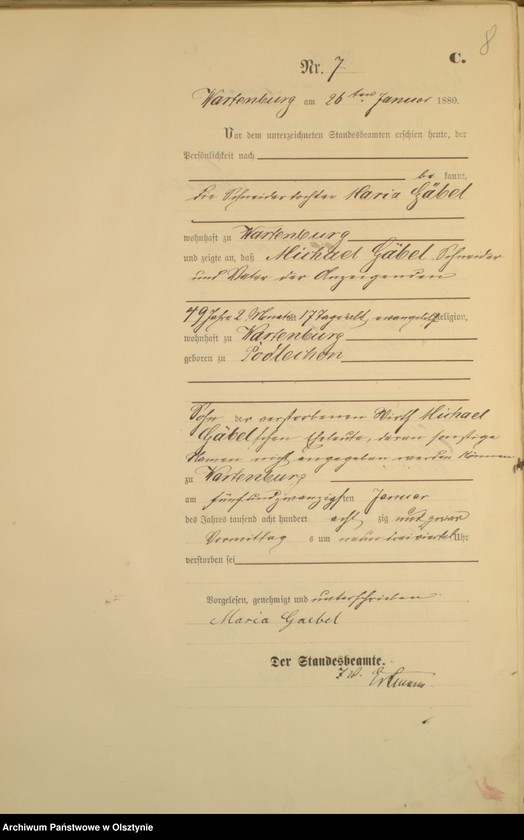 8
C.
Nr. 7
Wartenburg am 26ten Januar 1880.
Vor dem unterzeichneten Standesbeamten erschien heute, der
Persönlichkeit nach
be kannt,
die Schneidertochter Maria Gäbel
wohnhaft zu Wartenburg
und zeigte an, daß Michael Gäbel, Schneider
und Vater der Anzeigenden
49 Jahre 2 Monate 17 Tage alt, evangelischer Religion,
wohnhaft zu Wartenburg
geboren zu Podlechen
Sohn der verstorbenen Wirth Michael
Gäbel'schen Eheleute, deren sonstige
Namen nicht angegeben werden können
zu Wartenburg
am fünfundzwanzigsten Januar
des Jahres tausend acht hundert achtzig und zwar
Vormittags um neun dreiviertel Uhr
verstorben sei
Vorgelesen, genehmigt und unterschrieben
Maria Gaebel
Der Standesbeamte.
Archiwum Państwowe w Olsztynie